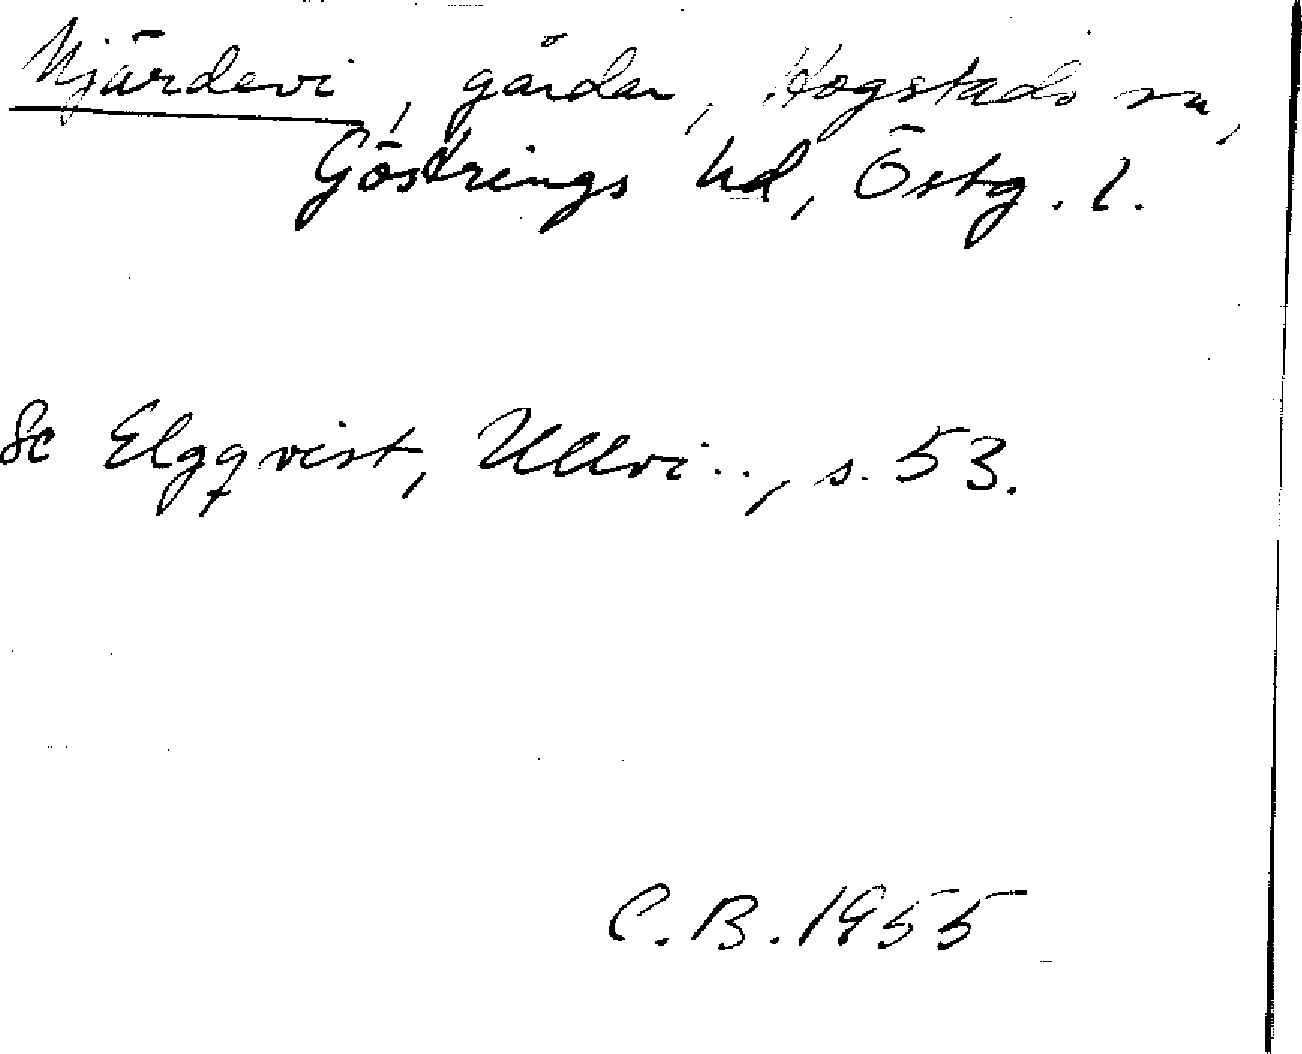 Njärdevi, gårdar, Hogstads sn,
Göstrings hd, Östg. l.
Se Elgqvist, Ullvi.., s. 53.
C.B. 1955